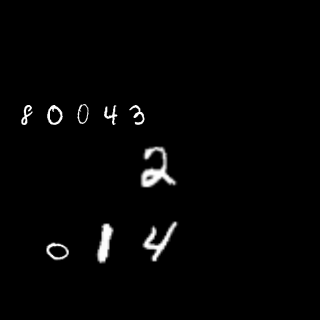 8 0 0 4 3
2
0 1 4